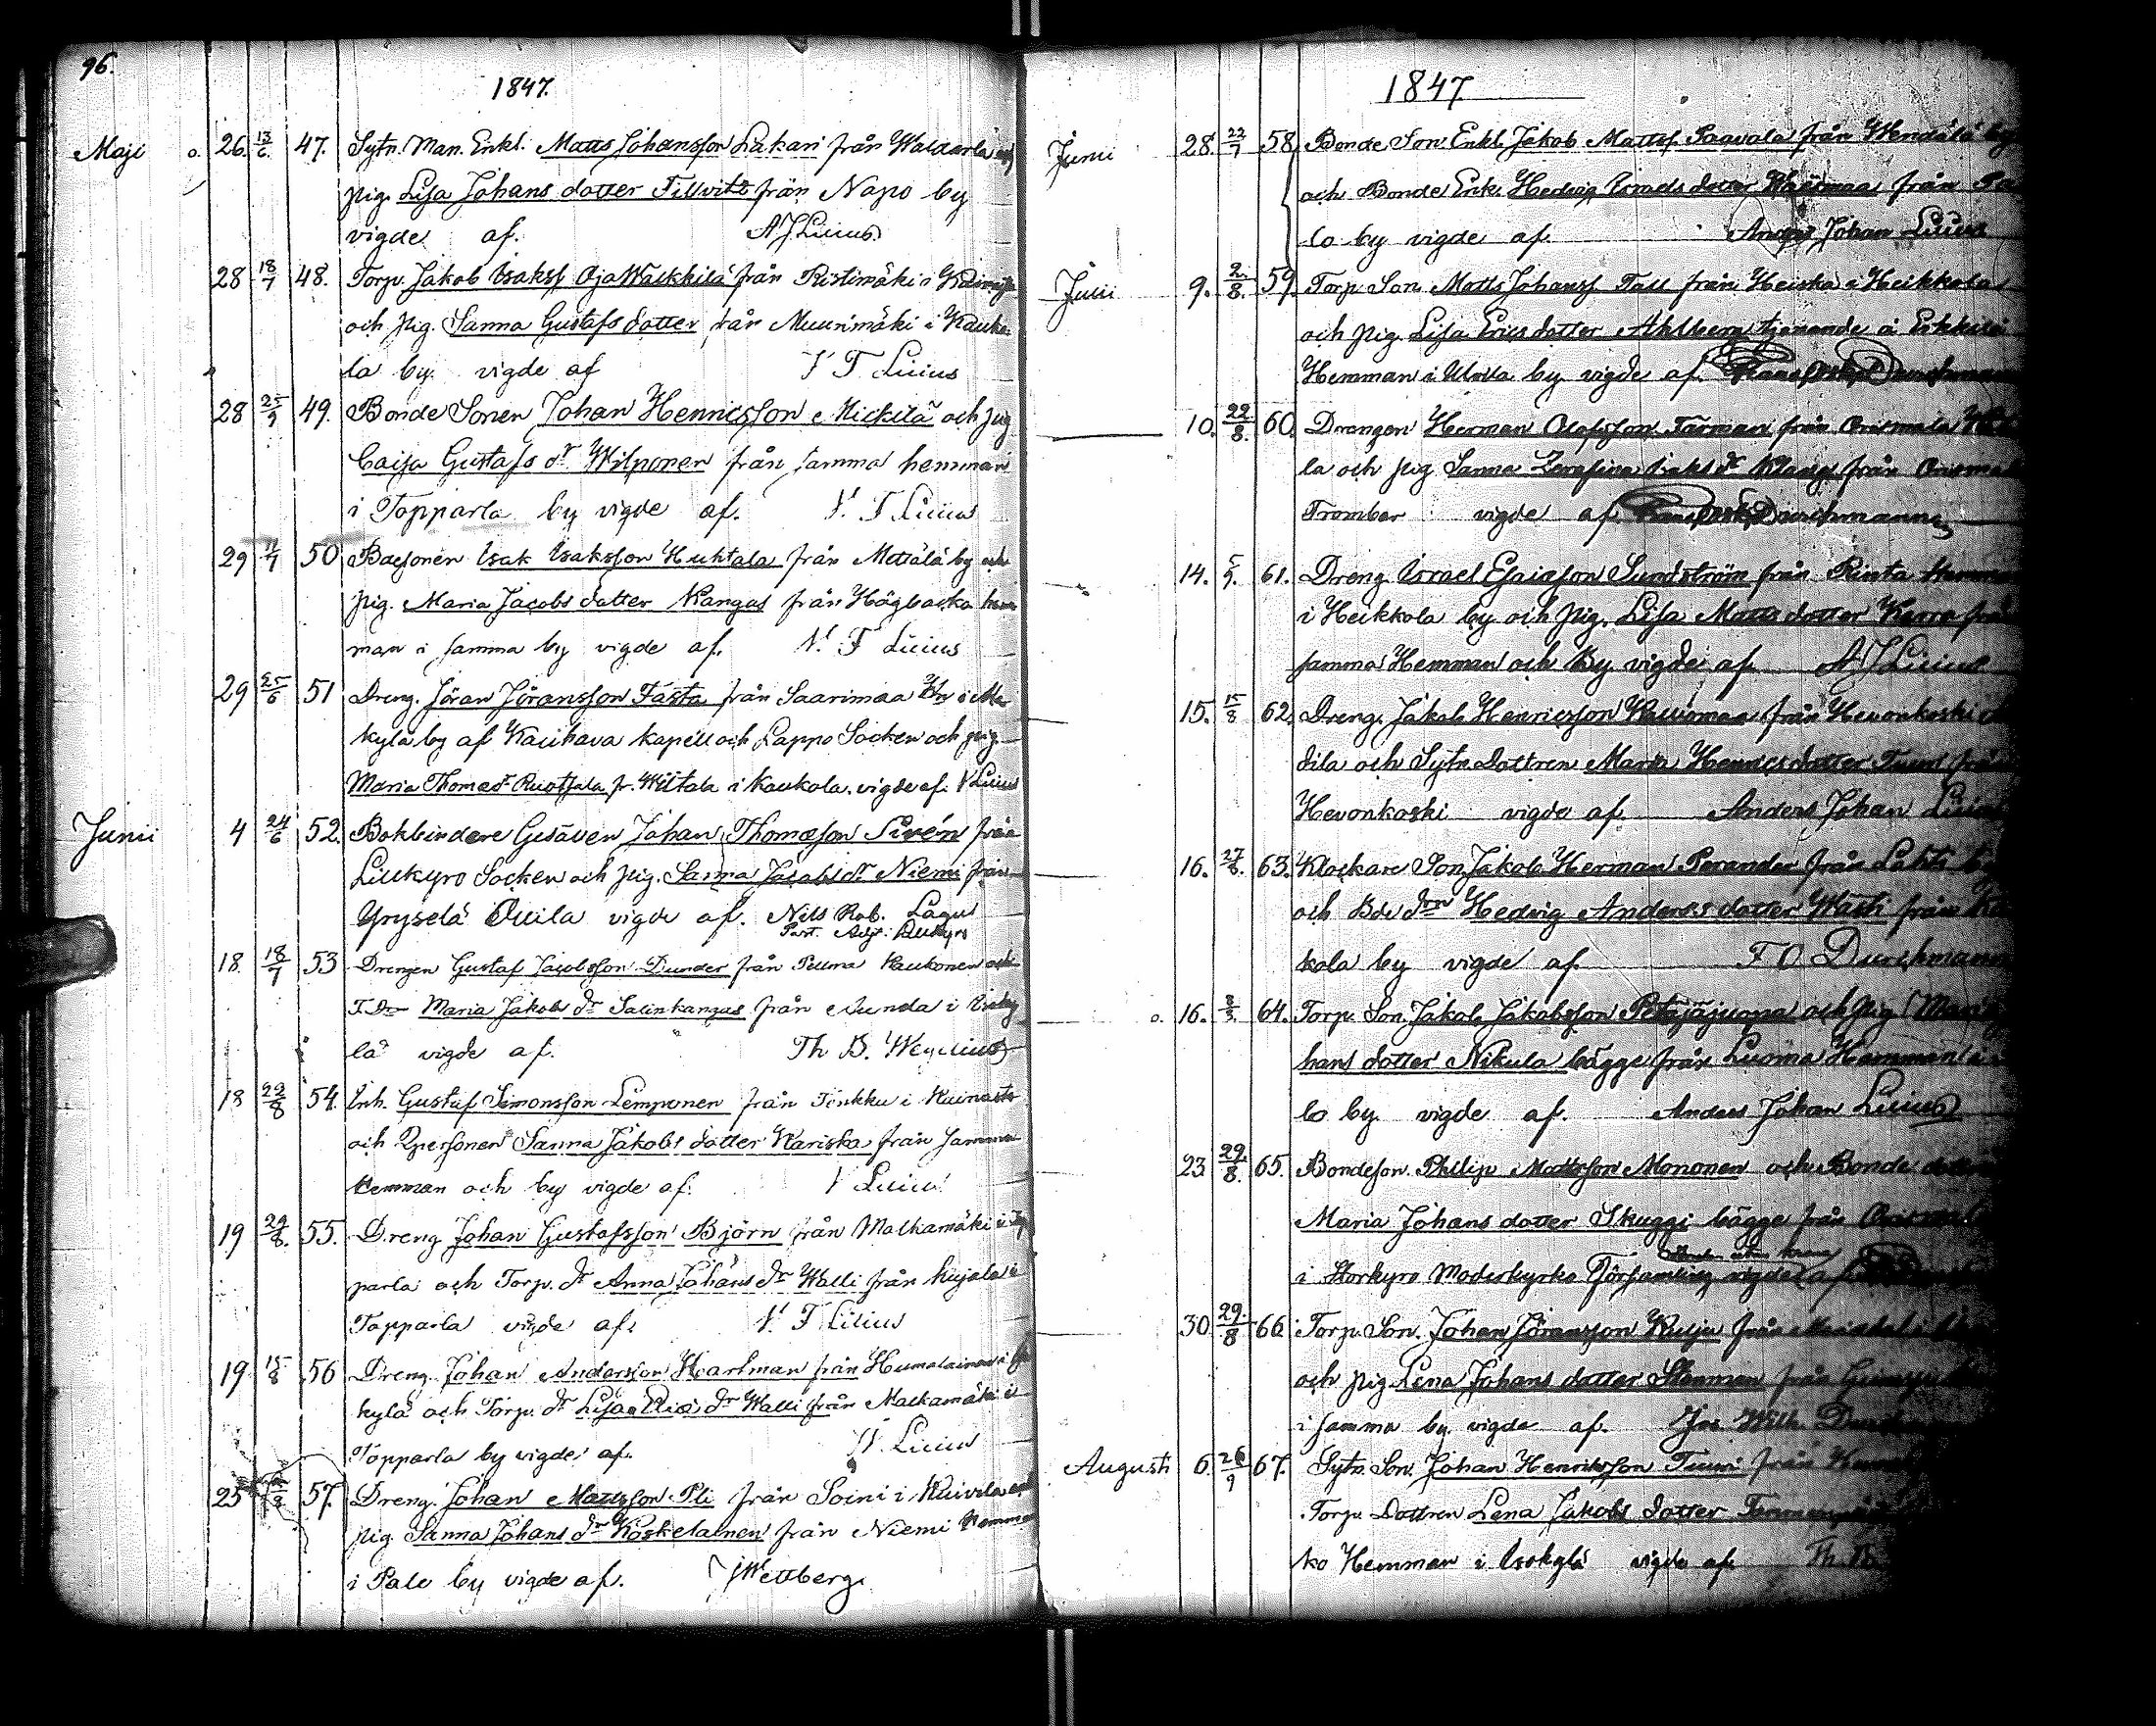 96.
1847.
Maji o. 26. 13/6. 47. Sytn. Man. Enkl. Matts Johansson Lakari från Waldarla och
pig. Lisa Johans dotter Tillvits från Napo by
vigde af. A J Lilius
28 18/7 48. Torp. Jakob Isakss Oja Wälkkilä från Ristimäki i
och pig. Sanna Gustafs dotter från Muurimäki i Kauko
la by. vigde af V F Lilius
28 25/9 49. Bonde Sonen Johan Henricsson Mickilä och pig
Caisa Gustafs dr Wilponen från samma hemman
i Topparla by vigde af. V. F Lilius
29 11/7 50 Bdesonen Isak Isaksson Huhtala från Mettälä by och
pig. Maria Jacobs dotter Kangas från Högbacka hem
man i samma by vigde af. V. F Lilius
29 25/6 51 Dreng. Jöran Jöransson Fästa från Saarimaa
kylä by af Kauhava kapell och Lappo Socken och pig.
Maria Thomasdr Ruotsala fr. Wiltala i Kaukola. vigde af. V Lilius
Junii 4 24/6 52. Bokbindare Gesäven Johan Thomasson Sirén från
Lillkyro Socken och pig. Sanna Jacobs dr Niemi från
Yryselä Ollila vigde af. Nils Rob. Lagus
Past. Adj. i Lillkyro
18. 18/7 53 Drengen Gustaf Jacobsson Dunder från Pelma Haukonen och
T. Dr Maria Jakobs dr Salinkangas från Kunda i Isoky
lä vigde af. Th B. Wegelius
18 22/8 54. Inh. Gustaf Simonsson Lemponen från Tinkku i Kuinasto
och Qpersonen Sanna Jakobs dotter Kariska från samma
hemman och by vigde af. V Lilius
19 29/8. 55. Dreng Johan Gustafsson Björn från Malkamäki i Top
parla och Torp. dr Anna Johans dr Walli från kujala i
Topparla vigde af. V. F Lilius
19 15/8 56 Dreng. Johan Andersson Harlman från Humalainen i
kylä och Torp. dr Lisa Elias dr Walli från Malkamäki i
Topparla by vigde af. V. Lilius
25 57. Dreng. Johan Mattsson Pli från Soini i Kuivila och
pig. Sanna Johans dr Koskelainen från Niemi Hemman
i Palo by vigde af. J Wettberg.
1847
Junii 28. 22/7 58. Bonde Son Enkl. Jakob Mattss. Paavola från Wendälä by
och Bonde Enk. Hedvig Israels dotter från Pa
lo by vigde af. Anders Johan Lilius
Julii 9. 2/8. 59. Torp. Son Matts Johanss Tall från Heiska i Heikkola
och pig. Lisa Erics dotter Ahlberg tjenande å Erkkilä
Hemman i Ulvila by vigde af. Frans Oskar Durchman
10. 22/8. 60. Drengen Herman Olofsson Färman från Orismala
la och pig Sanna Serafina Isaks dr Klaaga från Orismala
Trombar vigde af Frans Osk Durchmann
14. 5/9. 61. Dreng. Israel Esaiasson Sundström från Rinta Hemman
i Heikkola by och pig. Lisa Matts dotter Karro från
samma Hemman och By vigde af. A J Lilius
15. 15/8 62. Dreng. Jakob Henricsson Kalliomaa från Hevonkoski
dila och Sytn. Dottren Maria Henrics dotter Tuuri från
Hevonkoski vigde af. Anders Johan Lilius
16. 27/8. 63. Klockare Son Jakob Herman Perander från Lahti by
och Bde drn Hedvig Anders dotter Wästi från
kola by vigde af. F O Durchmann
o. 16. 64. Torp. Son. Jakob Jakobsson Petäjäjuopa och pig Maria
hans dotter Nikula bägge från Luoma Hemman i
lo by vigde af. Anders Johan Lilius
23 29/8. 65. Bondeson Philip Mattsson Mononen och Bonde dottren
Maria Johans dotter Skuggi bägge från Orismala
i Storkyro Moderkyrko Församling vigde af
30. 29/8 66. Torp. Son. Johan Jöransson Kulju från
och pig Lena Johans dotter Stenman från
i samma by. vigde af. Jos Wilh. Durchman
Augusti 6. 26/9 67. Sytn. Son. Johan Henriksson Tuuri från
Torp. Dottren Lena Jakobs dotter
ko Hemman i Isokylä vigde af. Th. B.